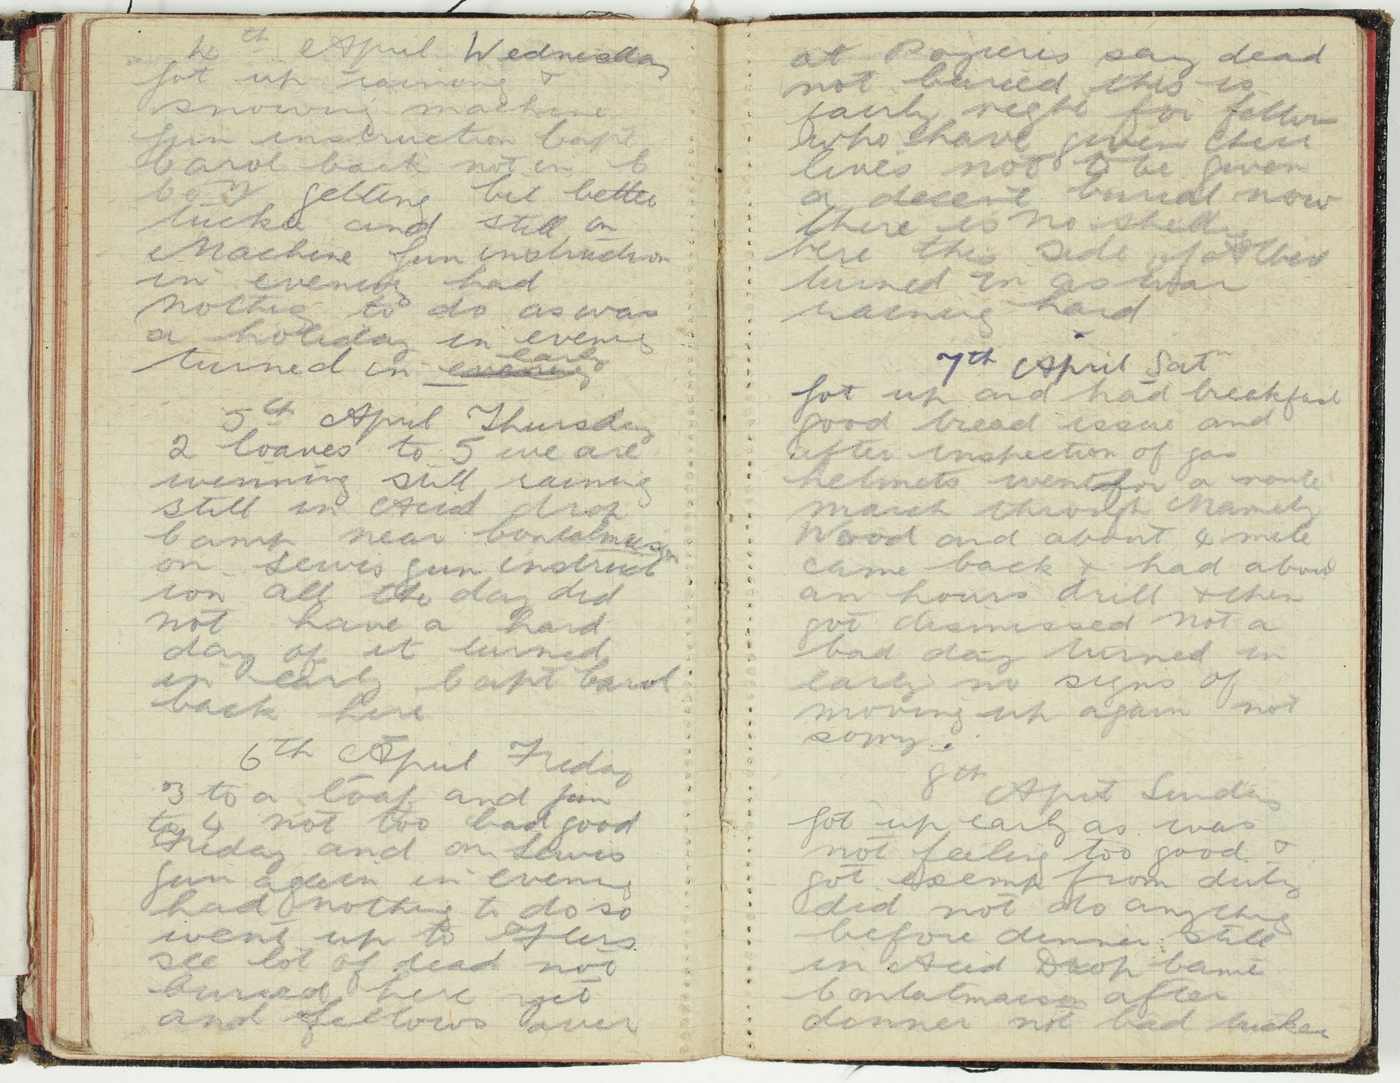 4th April Wednesday
Got up raining &
snowing machine
gun instruction Capt
Carol back not in C
Coy getting bit better
tucker and still on
Machine gun instruction
in evening had
nothig to do as was
a holiday in evenig
turned in early
5th April Thursday
2 loaves to 5 we are
winning still raining
still in Acid drop
Camp near Contalmaison
on Lewis gun instruct
ion all the day did
not have a hard
day of it turned
in early Capt Carol
back here
6th April Friday
3 to a loaf and jam
to 4 not too bad good
Friday and on Lewis
gun again in evening
had nothing to do so
went up to Flers
see lot of dead not
buried here yet
and fellows over
at Pozieres say dead
not buried this is
fairly right for fellows
who have given their
lives not to be given
a decent burial now
there is no shells
here this side of
turned in as was
raining hard
7th April Sat
Got up and had breekfast
good bread issue and
after inspection of gas
helmets went for a route
march through Mametz
Wood and about 4 mile
came back & had about
an hours drill & then
got dismissed not a
bad day turned in
early no signs of
moving up again not
sorry.
8th April Sunday
Got up early as was
not feeling too good &
got exemp from duty
did not do anything
before dinner still
in Acid Drop Camp
Contalmaison after
dinner not bad tucker